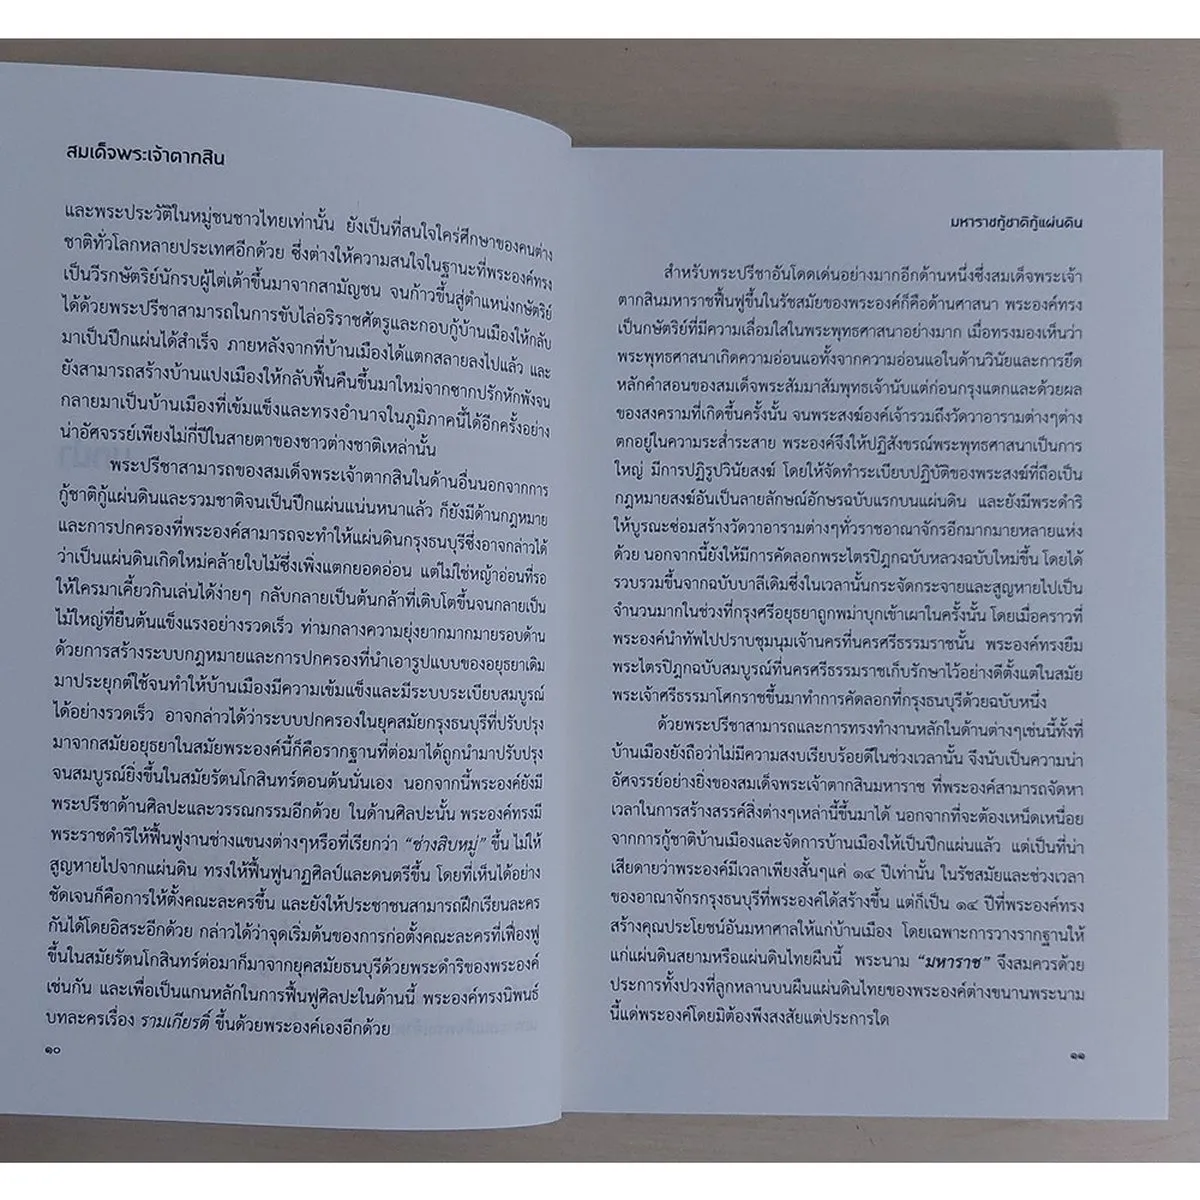 สมเด็จพระเจ้าตากสิน
และพระประวัติในหมู่ชนชาวไทยเท่านั้น ยังเป็นที่สนใจใคร่ศึกษาของคนต่าง
ชาติทั่วโลกหลายประเทศอีกด้วย ซึ่งต่างให้ความสนใจในฐานะที่พระองค์ทรง
เป็นวีรกษัตริย์นักรบผู้ไต่เต้าขึ้นมาจากสามัญชน จนก้าวขึ้นสู่ตำแหน่งกษัตริย์
ได้ด้วยพระปรีชาสามารถในการขับไล่อริราชศัตรูและกอบกู้บ้านเมืองให้กลับ
มาเป็นปึกแผ่นได้สำเร็จ ภายหลังจากที่บ้านเมืองได้แตกสลายลงไปแล้ว และ
ยังสามารถสร้างบ้านแปงเมืองให้กลับฟื้นคืนขึ้นมาใหม่จากซากปรักหักพังจน
กลายมาเป็นบ้านเมืองที่เข้มแข็งและทรงอำนาจในภูมิภาคนี้ได้อีกครั้งอย่าง
น่าอัศจรรย์เพียงไม่กี่ปีในสายตาของชาวต่างชาติเหล่านั้น
พระปรีชาสามารถของสมเด็จพระเจ้าตากสินในด้านอื่นนอกจากการ
กู้ชาติกู้แผ่นดินและรวมชาติจนเป็นปึกแผ่นแน่นหนาแล้ว ก็ยังมีด้านกฎหมาย
และการปกครองที่พระองค์สามารถจะทำให้แผ่นดินกรุงธนบุรีซึ่งอาจกล่าวได้
ว่าเป็นแผ่นดินเกิดใหม่คล้ายใบไม้ซึ่งเพิ่งแตกยอดอ่อน แต่ไม่ใช่หญ้าอ่อนที่รอ
ให้ใครมาเคี้ยวกินเล่นได้ง่ายๆ กลับกลายเป็นต้นกล้าที่เติบโตขึ้นจนกลายเป็น
ไม้ใหญ่ที่ยืนต้นแข็งแรงอย่างรวดเร็ว ท่ามกลางความยุ่งยากมากมายรอบด้าน
ด้วยการสร้างระบบกฎหมายและการปกครองที่นำเอารูปแบบของอยุธยาเดิม
มาประยุกต์ใช้จนทำให้บ้านเมืองมีความเข้มแข็งและมีระบบระเบียบสมบูรณ์
ได้อย่างรวดเร็ว อาจกล่าวได้ว่าระบบปกครองในยุคสมัยกรุงธนบุรีที่ปรับปรุง
มาจากสมัยอยุธยาในสมัยพระองค์นี้ก็คือรากฐานที่ต่อมาได้ถูกนำมาปรับปรุง
จนสมบูรณ์ยิ่งขึ้นในสมัยรัตนโกสินทร์ตอนต้นนั่นเอง นอกจากนี้พระองค์ยังมี
พระปรีชาด้านศิลปะและวรรณกรรมอีกด้วย ในด้านศิลปะนั้น พระองค์ทรงมี
พระราชดำริให้ฟื้นฟูงานช่างแขนงต่างๆหรือที่เรียกว่า “ช่างสิบหมู่” ขึ้น ไม่ให้
สูญหายไปจากแผ่นดิน ทรงให้ฟื้นฟูนาฏศิลป์และดนตรีขึ้น โดยที่เห็นได้อย่าง
ชัดเจนก็คือการให้ตั้งคณะละครขึ้น และยังให้ประชาชนสามารถฝึกเรียนละคร
กันได้โดยอิสระอีกด้วย กล่าวได้ว่าจุดเริ่มต้นของการก่อตั้งคณะละครที่เฟื่องฟู
ขึ้นในสมัยรัตนโกสินทร์ต่อมาก็มาจากยุคสมัยธนบุรีด้วยพระดำริของพระองค์
เช่นกัน และเพื่อเป็นแกนหลักในการฟื้นฟูศิลปะในด้านนี้ พระองค์ทรงนิพนธ์
บทละครเรื่อง รามเกียรติ์ ขึ้นด้วยพระองค์เองอีกด้วย
๑๐
มหาราชกู้ชาติกู้แผ่นดิน
สำหรับพระปรีชาอันโดดเด่นอย่างมากอีกด้านหนึ่งซึ่งสมเด็จพระเจ้า
ตากสินมหาราชฟื้นฟูขึ้นในรัชสมัยของพระองค์ก็คือด้านศาสนา พระองค์ทรง
เป็นกษัตริย์ที่มีความเลื่อมใสในพระพุทธศาสนาอย่างมาก เมื่อทรงมองเห็นว่า
พระพุทธศาสนาเกิดความอ่อนแอทั้งจากความอ่อนแอในด้านวินัยและการยึด
หลักคำสอนของสมเด็จพระสัมมาสัมพุทธเจ้านับแต่ก่อนกรุงแตกและด้วยผล
ของสงครามที่เกิดขึ้นครั้งนั้น จนพระสงฆ์องค์เจ้ารวมถึงวัดวาอารามต่างๆต่าง
ตกอยู่ในความระส่ำระสาย พระองค์จึงให้ปฏิสังขรณ์พระพุทธศาสนาเป็นการ
ใหญ่ มีการปฏิรูปวินัยสงฆ์ โดยให้จัดทำระเบียบปฏิบัติของพระสงฆ์ที่ถือเป็น
กฎหมายสงฆ์อันเป็นลายลักษณ์อักษรฉบับแรกบนแผ่นดิน และยังมีพระดำริ
ให้บูรณะซ่อมสร้างวัดวาอารามต่างๆทั่วราชอาณาจักรอีกมากมายหลายแห่ง
ด้วย นอกจากนี้ยังให้มีการคัดลอกพระไตรปิฎกฉบับหลวงฉบับใหม่ขึ้น โดยได้
รวบรวมขึ้นจากฉบับบาลีเดิมซึ่งในเวลานั้นกระจัดกระจายและสูญหายไปเป็น
จำนวนมากในช่วงที่กรุงศรีอยุธยาถูกพม่าบุกเข้าเผาในครั้งนั้น โดยเมื่อคราวที่
พระองค์นำทัพไปปราบชุมนุมเจ้านครที่นครศรีธรรมราชนั้น พระองค์ทรงยืม
พระไตรปิฎกฉบับสมบูรณ์ที่นครศรีธรรมราชเก็บรักษาไว้อย่างดีตั้งแต่ในสมัย
พระเจ้าศรีธรรมาโศกราชขึ้นมาทำการคัดลอกที่กรุงธนบุรีด้วยฉบับหนึ่ง
ด้วยพระปรีชาสามารถและการทรงทำงานหลักในด้านต่างๆเช่นนี้ทั้งที่
บ้านเมืองยังถือว่าไม่มีความสงบเรียบร้อยดีในช่วงเวลานั้น จึงนับเป็นความน่า
อัศจรรย์อย่างยิ่งของสมเด็จพระเจ้าตากสินมหาราช ที่พระองค์สามารถจัดหา
เวลาในการสร้างสรรค์สิ่งต่างๆเหล่านี้ขึ้นมาได้ นอกจากที่จะต้องเหน็ดเหนื่อย
จากการกู้ชาติบ้านเมืองและจัดการบ้านเมืองให้เป็นปึกแผ่นแล้ว แต่เป็นที่น่า
เสียดายว่าพระองค์มีเวลาเพียงสั้นๆแค่ ๑๔ ปีเท่านั้น ในรัชสมัยและช่วงเวลา
ของอาณาจักรกรุงธนบุรีที่พระองค์ได้สร้างขึ้น แต่ก็เป็น ๑๔ ปีที่พระองค์ทรง
สร้างคุณประโยชน์อันมหาศาลให้แก่บ้านเมือง โดยเฉพาะการวางรากฐานให้
แก่แผ่นดินสยามหรือแผ่นดินไทยผืนนี้ พระนาม “มหาราช” จึงสมควรด้วย
ประการทั้งปวงที่ลูกหลานบนผืนแผ่นดินไทยของพระองค์ต่างขนานพระนาม
นี้แด่พระองค์โดยมิต้องพึงสงสัยแต่ประการใด
๑๑